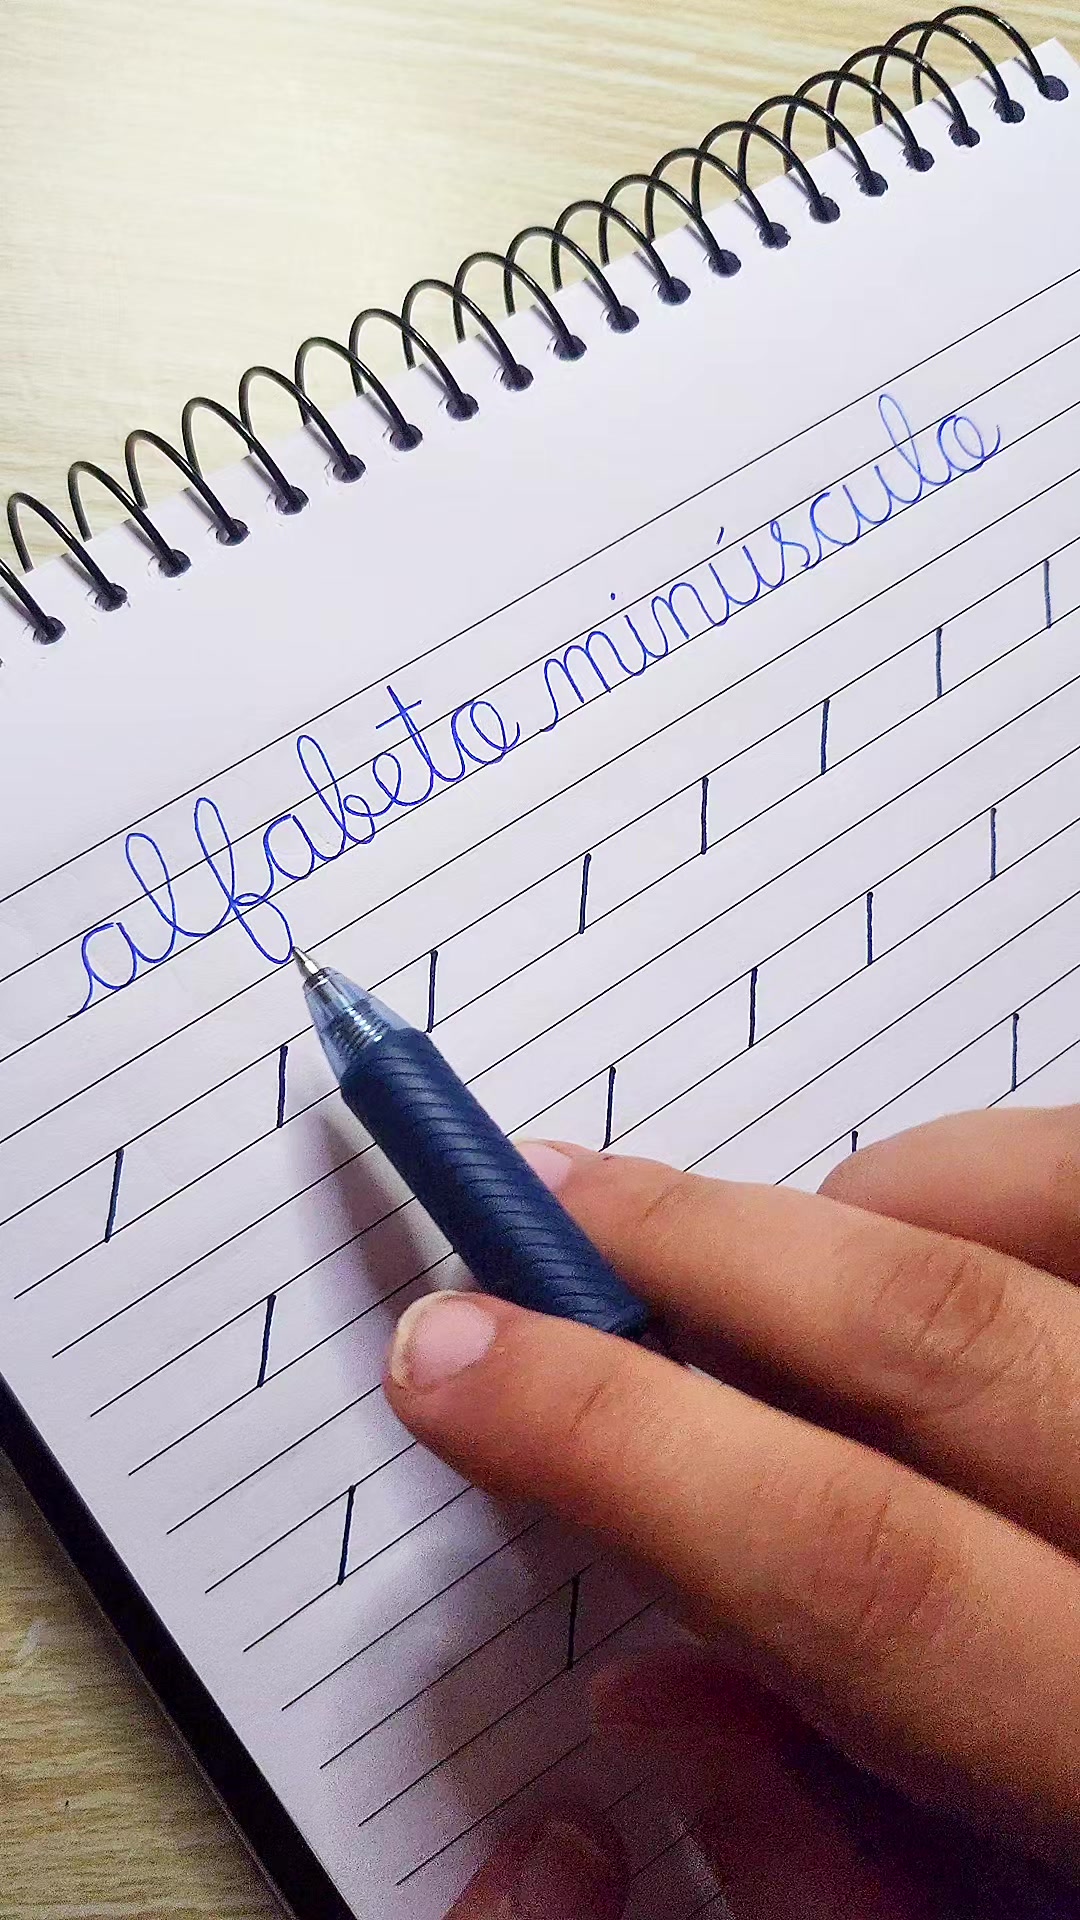 alfabeto minúsculo